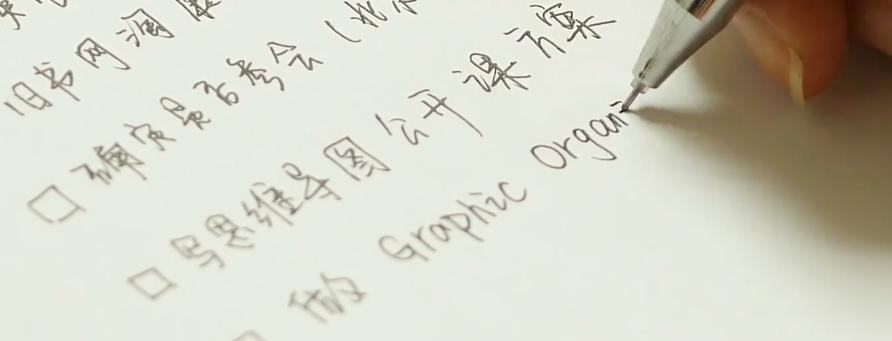 旧书网
□ 确定是否参会（北京
□ 写思维导图公开课方案
□ 做 Graphic Organi